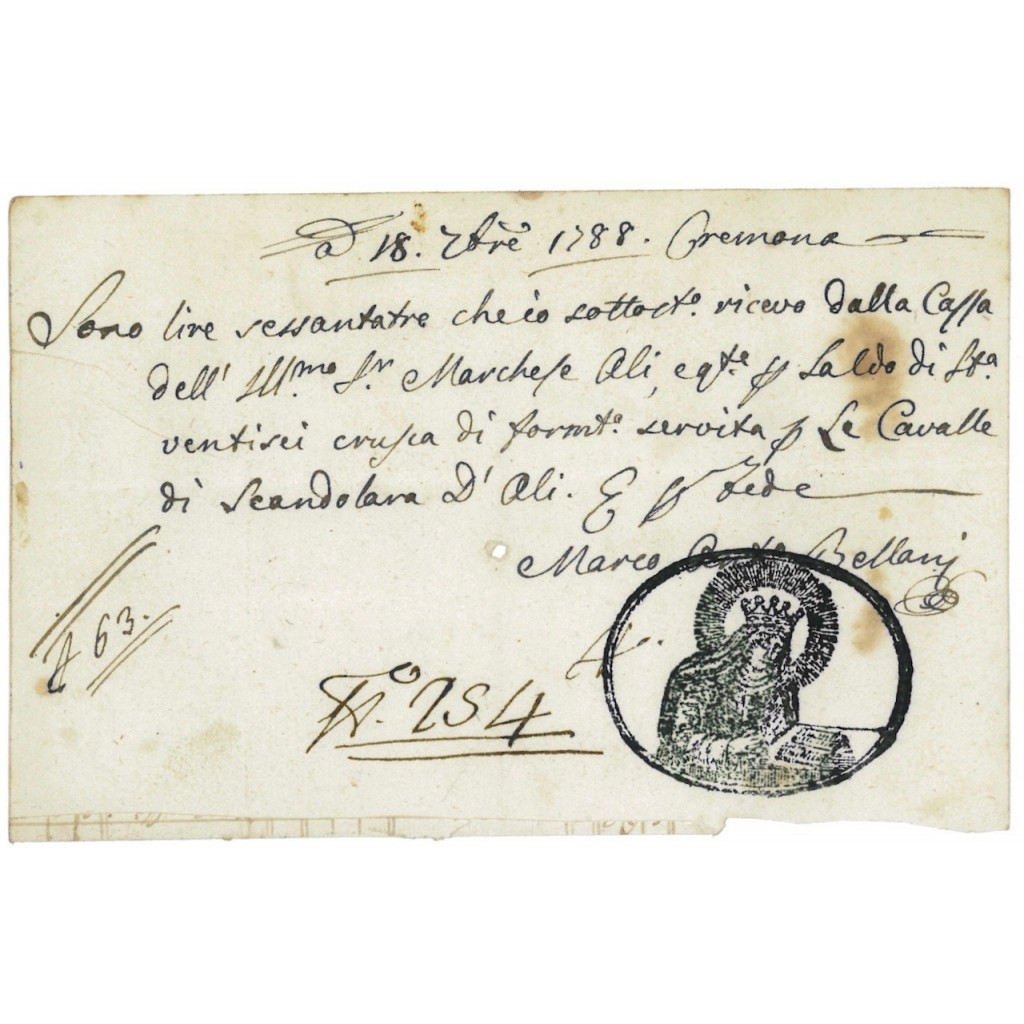 Ad 18. 7bre 1788. Cremona
Sono lire sessantatre che io sottosto. ricevo dalla Cassa
dell' Illmo Sr Marchese Ali, e qte p Saldo di Sta.
ventisei crusca di formto. servita p Le Cavalle
di Scandolara D' Ali. E p fede
Marco Bellani
£ 63.
No. 254